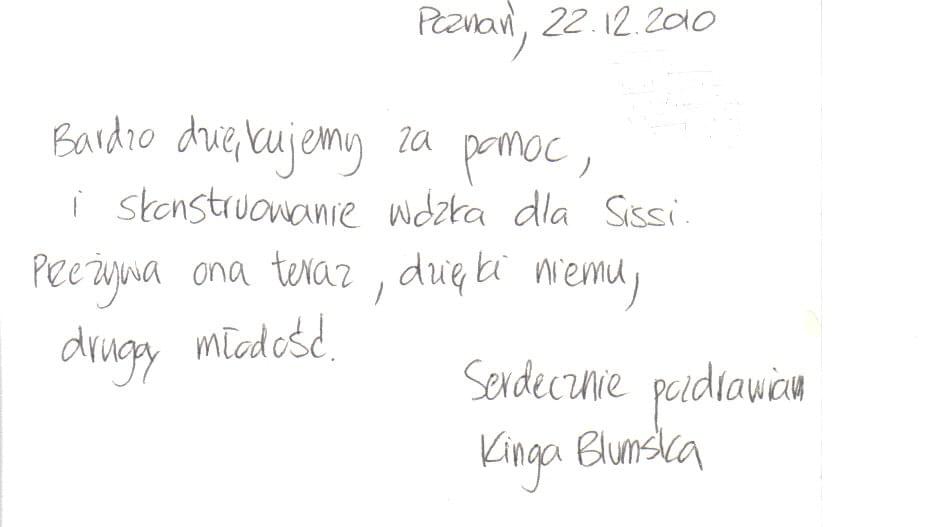 Poznań, 22.12.2010
Bardzo dziękujemy za pomoc,
i skonstruowanie wózka dla Sissi.
Przeżywa ona teraz, dzięki niemu,
drugą młodość.
Serdecznie pozdrawiam
Kinga Blumska